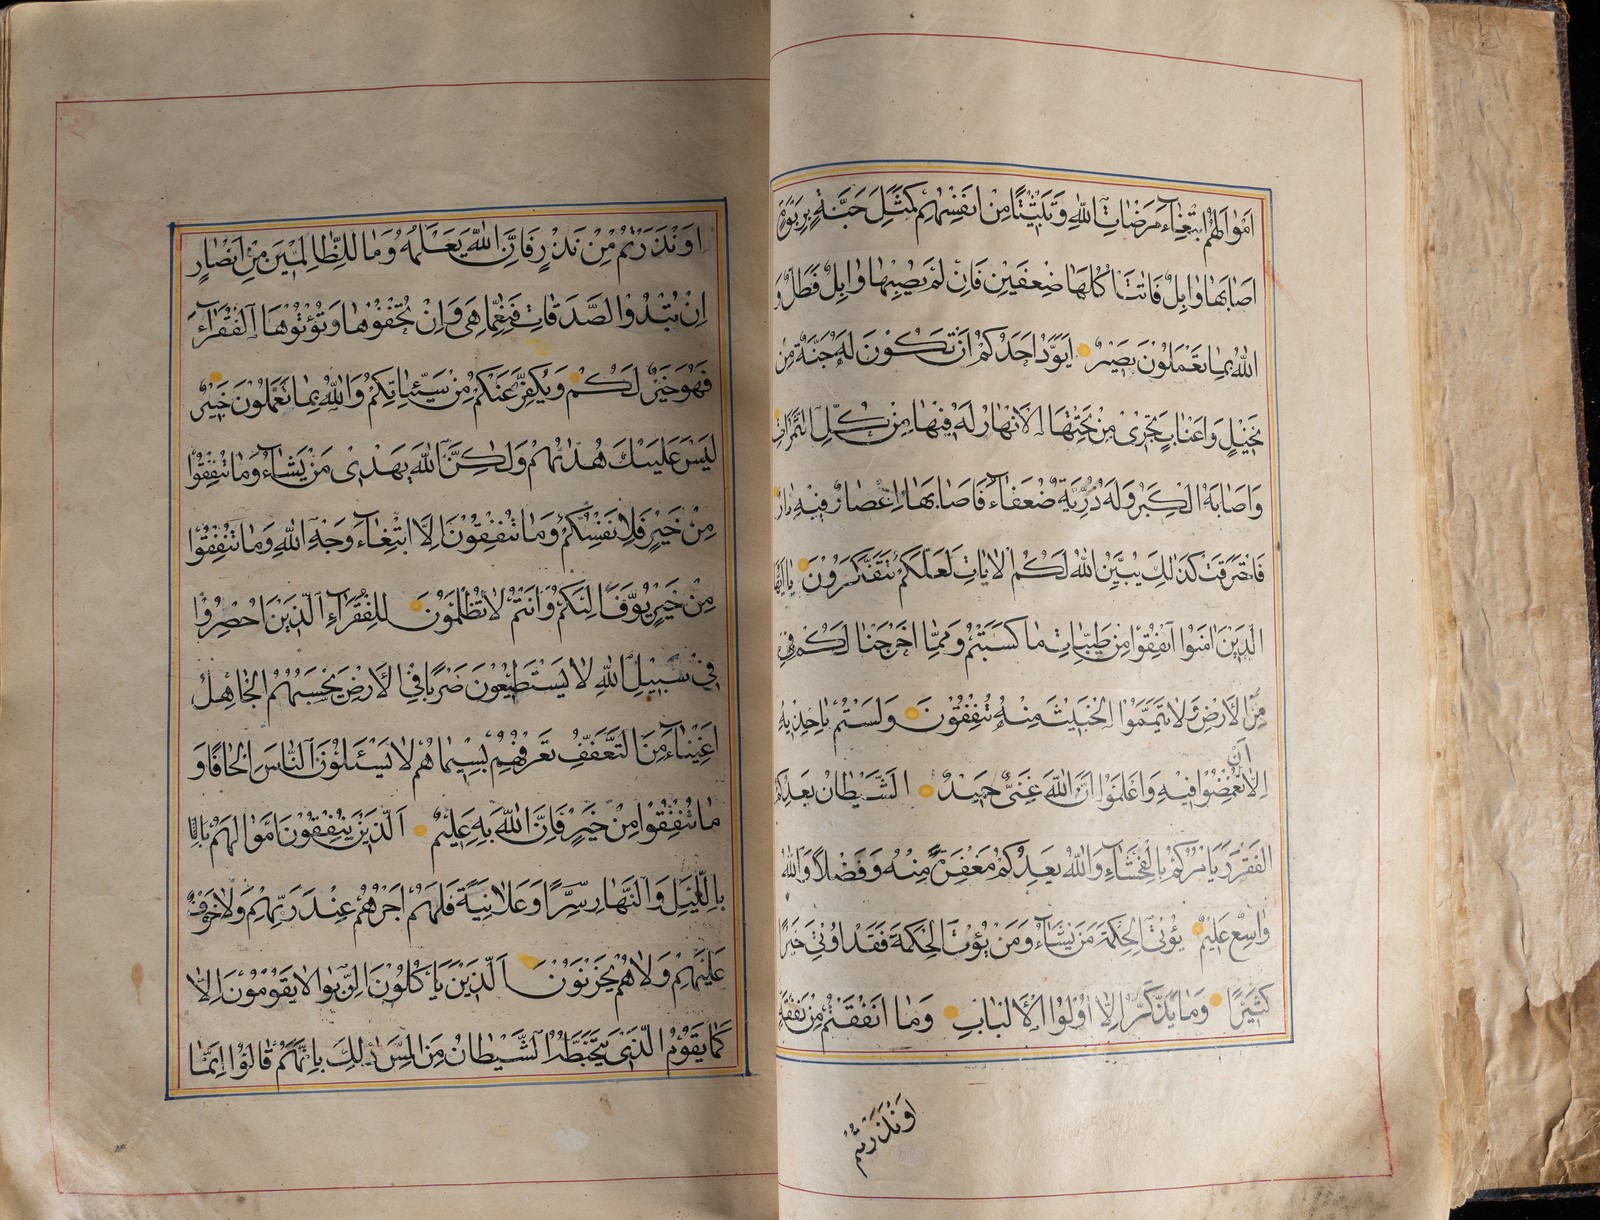 اَمْوَالَهُمُ ابْتِغَاءَ مَرْضَاتِ اللهِ وَتَثْبِيتًا مِنْ اَنْفُسِهِمْ كَمَثَلِ جَنَّةٍ بِرَبْوَةٍ
اَصَابَهَا وَابِلٌ فَاتَتْ اُكُلَهَا ضِعْفَيْنِ فَاِنْ لَمْ يُصِبْهَا وَابِلٌ فَطَلٌّ وَ
اللهُ بِمَا تَعْمَلُونَ بَصِيرٌ اَيَوَدُّ اَحَدُكُمْ اَنْ تَكُونَ لَهُ جَنَّةٌ مِنْ
نَخِيلٍ وَاَعْنَابٍ تَجْرِى مِنْ تَحْتِهَا الْاَنْهَارُ لَهُ فِيهَا مِنْ كُلِّ الثَّمَرَاتِ
وَاَصَابَهُ الْكِبَرُ وَلَهُ ذُرِّيَّةٌ ضُعَفَاءُ فَاَصَابَهَا اِعْصَارٌ فِيهِ نَارٌ
فَاحْتَرَقَتْ كَذَلِكَ يُبَيِّنُ اللهُ لَكُمُ الْاٰيَاتِ لَعَلَّكُمْ تَتَفَكَّرُونَ يَا اَيُّهَا
الَّذِينَ اٰمَنُوا اَنْفِقُوا مِنْ طَيِّبَاتِ مَا كَسَبْتُمْ وَمِمَّا اَخْرَجْنَا لَكُمْ
مِنَ الْاَرْضِ وَلَا تَيَمَّمُوا الْخَبِيثَ مِنْهُ تُنْفِقُونَ وَلَسْتُمْ بِاٰخِذِيهِ
اَنْ
اِلَّا تُغْمِضُوا فِيهِ وَاعْلَمُوا اَنَّ اللهَ غَنِىٌّ حَمِيدٌ الشَّيْطَانُ يَعِدُكُمُ
الْفَقْرَ وَيَاْمُرُكُمْ بِالْفَحْشَاءِ وَاللهُ يَعِدُكُمْ مَغْفِرَةً مِنْهُ وَفَضْلًا وَاللهُ
وَاسِعٌ عَلِيمٌ يُؤْتِى الْحِكْمَةَ مَنْ يَشَاءُ وَمَنْ يُؤْتَ الْحِكْمَةَ فَقَدْ اُوتِىَ خَيْرًا
كَثِيرًا وَمَا يَذَّكَّرُ اِلَّا اُولُوا الْاَلْبَابِ وَمَا اَنْفَقْتُمْ مِنْ نَفَقَةٍ
اَوْ نَذَرْتُمْ
اَوْ نَذَرْتُمْ مِنْ نَذْرٍ فَاِنَّ اللهَ يَعْلَمُهُ وَمَا لِلظَّالِمِينَ مِنْ اَنْصَارٍ
اِنْ تُبْدُوا الصَّدَقَاتِ فَنِعِمَّا هِىَ وَاِنْ تُخْفُوهَا وَتُؤْتُوهَا الْفُقَرَاءَ
فَهُوَ خَيْرٌ لَكُمْ وَيُكَفِّرُ عَنْكُمْ مِنْ سَيِّئَاتِكُمْ وَاللهُ بِمَا تَعْمَلُونَ خَبِيرٌ
لَيْسَ عَلَيْكَ هُدٰىهُمْ وَلٰكِنَّ اللهَ يَهْدِى مَنْ يَشَاءُ وَمَا تُنْفِقُوا
مِنْ خَيْرٍ فَلِاَنْفُسِكُمْ وَمَا تُنْفِقُونَ اِلَّا ابْتِغَاءَ وَجْهِ اللهِ وَمَا تُنْفِقُوا
مِنْ خَيْرٍ يُوَفَّ اِلَيْكُمْ وَاَنْتُمْ لَا تُظْلَمُونَ لِلْفُقَرَاءِ الَّذِينَ اُحْصِرُوا
فِى سَبِيلِ اللهِ لَا يَسْتَطِيعُونَ ضَرْبًا فِى الْاَرْضِ يَحْسَبُهُمُ الْجَاهِلُ
اَغْنِيَاءَ مِنَ التَّعَفُّفِ تَعْرِفُهُمْ بِسِيمَاهُمْ لَا يَسْئَلُونَ النَّاسَ اِلْحَافًا وَ
مَا تُنْفِقُوا مِنْ خَيْرٍ فَاِنَّ اللهَ بِهِ عَلِيمٌ اَلَّذِينَ يُنْفِقُونَ اَمْوَالَهُمْ
بِالَّيْلِ وَالنَّهَارِ سِرًّا وَعَلَانِيَةً فَلَهُمْ اَجْرُهُمْ عِنْدَ رَبِّهِمْ وَلَا خَوْفٌ
عَلَيْهِمْ وَلَا هُمْ يَحْزَنُونَ اَلَّذِينَ يَاْكُلُونَ الرِّبٰوا لَا يَقُومُونَ اِلَّا
كَمَا يَقُومُ الَّذِى يَتَخَبَّطُهُ الشَّيْطَانُ مِنَ الْمَسِّ ذٰلِكَ بِاَنَّهُمْ قَالُوا اِنَّمَا